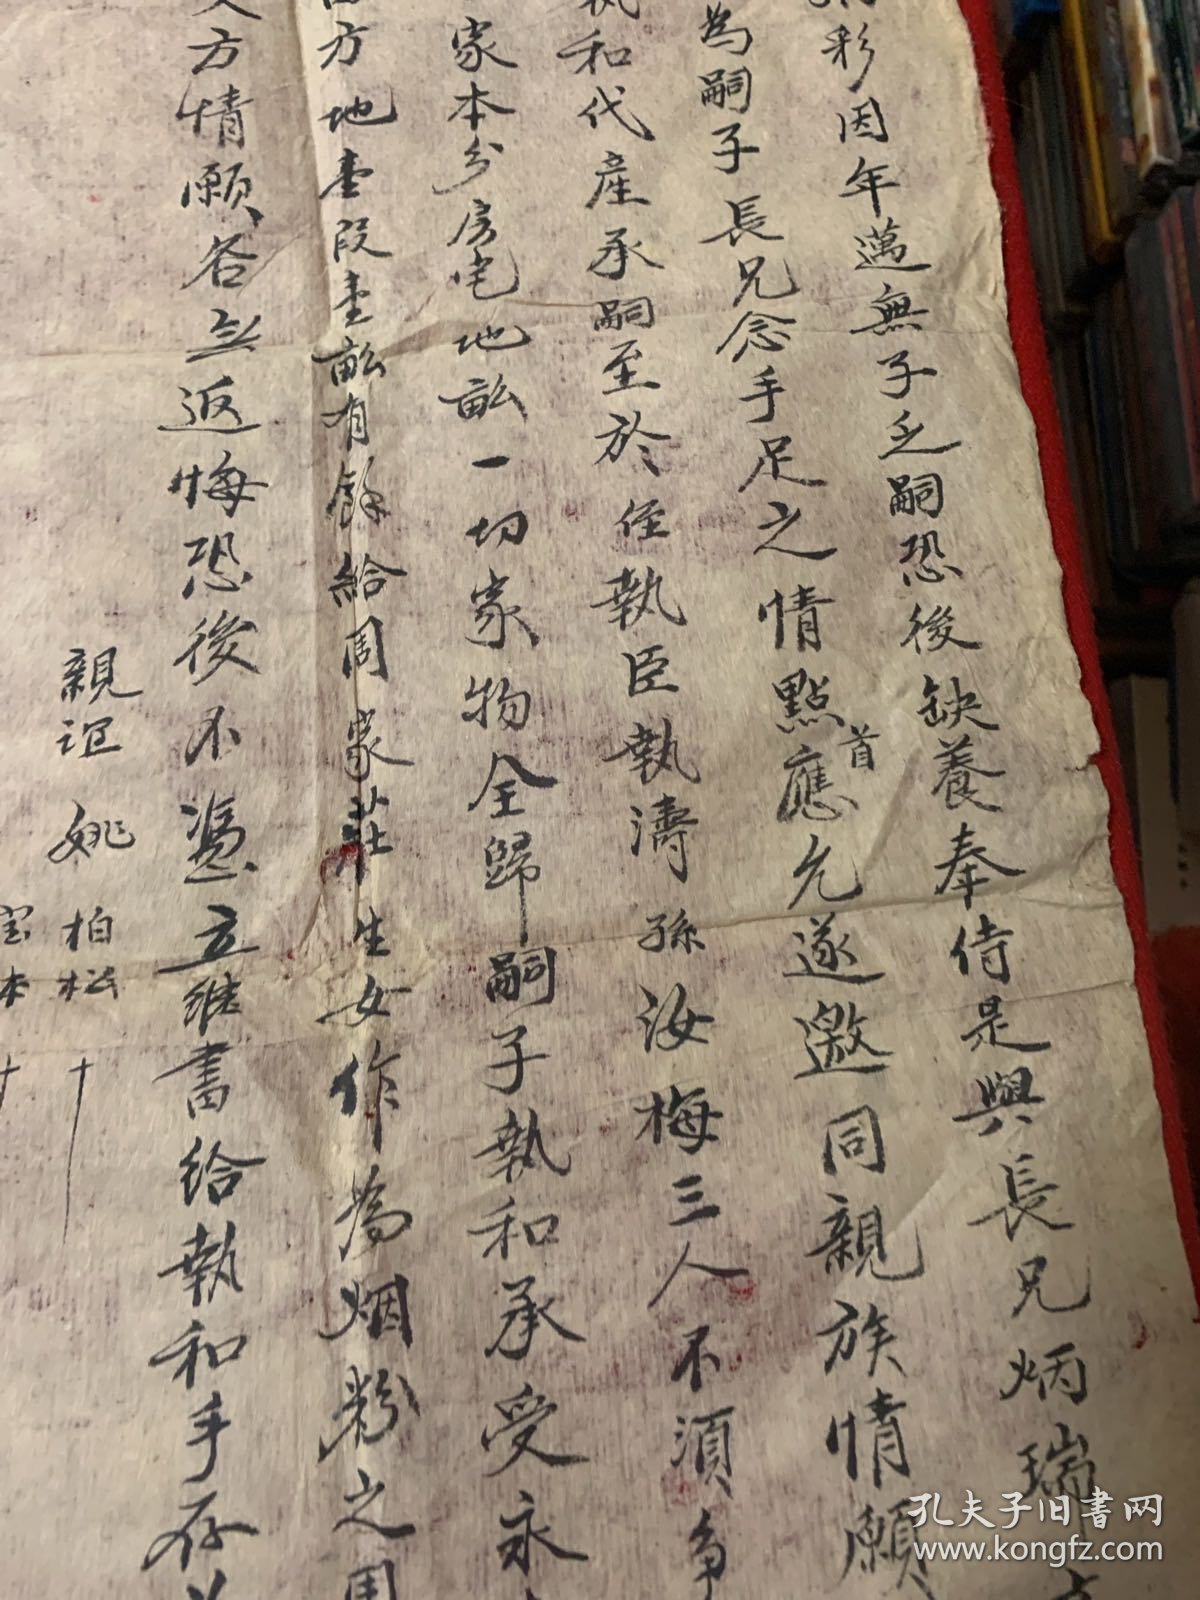 彩因年邁無子乏嗣恐後缺養奉侍是與長兄炳瑞
為嗣子長兄念手足之情點首應允遂邀同親族情願
執和代産承嗣至於侄執臣執濤孫汝梅三人不須争
家本分房宅地畝一切家物全歸嗣子執和承受永
方地壹段壹畝有餘給周家莊生女作為烟粉之用
方情願各無返悔恐後不憑立繼書給執和手存
親誼 姚柏松 十
本 十
孔夫子旧书网
www.kongfz.com